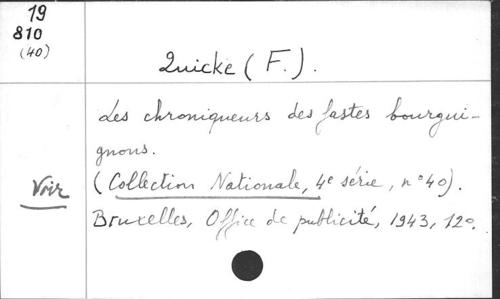 19
810
(40)
Quicke (F.).
Les chroniqueurs des fastes bourgui-
gnons.
Voir
(Collection Nationale, 4e série, n°40).
Bruxelles, Office de publicité, 1943, 12°.